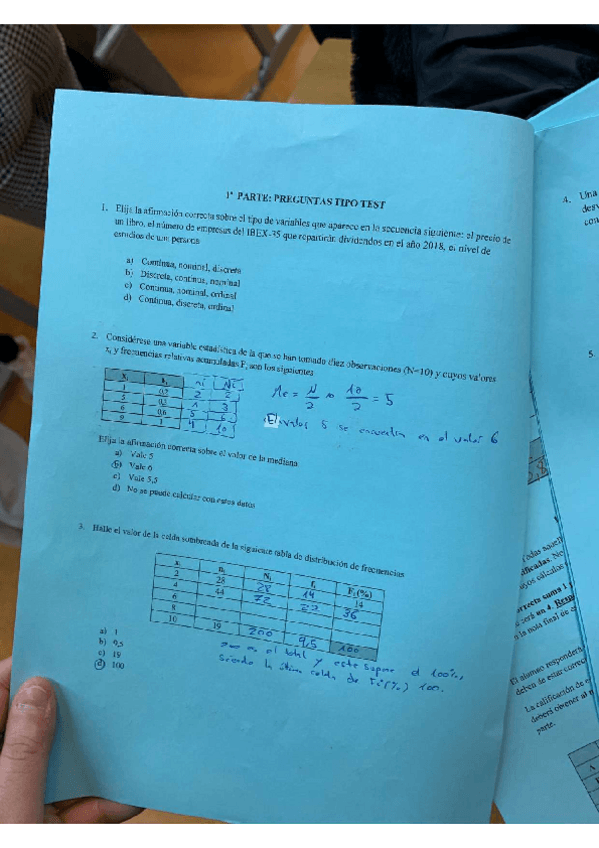 1ª PARTE: PREGUNTAS TIPO TEST
1. Elija la afirmación correcta sobre el tipo de variables que aparece en la secuencia siguiente: el precio de
un libro, el número de empresas del IBEX-35 que repartirán dividendos en el año 2018, el nivel de
estudios de una persona
a) Continua, nominal, discreta
b) Discreta, continua, nominal
c) Continua, nominal, ordinal
d) Continua, discreta, ordinal
2. Considérese una variable estadística de la que se han tomado diez observaciones (N=10) y cuyos valores
xi y frecuencias relativas acumuladas Fi son los siguientes
ni Ni
1 0,2 2 2
5 0,3 1 3
6 0,6
9 1 4 10
Me = N/2 10/2 = 5
El valor 5 se encuentra en el valor 6
Elija la afirmación correcta sobre el valor de la mediana
a) Vale 5
b) Vale 6
c) Vale 5,5
d) No se puede calcular con estos datos
3. Halle el valor de la celda sombreada de la siguiente tabla de distribución de frecuencias
xi ni Ni fi Fi(%)
2 28 28 14 14
4 44 72 22 36
6
8
10 19 200 9,5 100
a) 1
b) 9,5
c) 19
d) 100
es el total y este supone el 100%,
siendo la última celda de Fi(%) 100.
4. Una
5.
El alumno responderá
deben de estar correc
La calificación de e
deberá obtener al
parte.